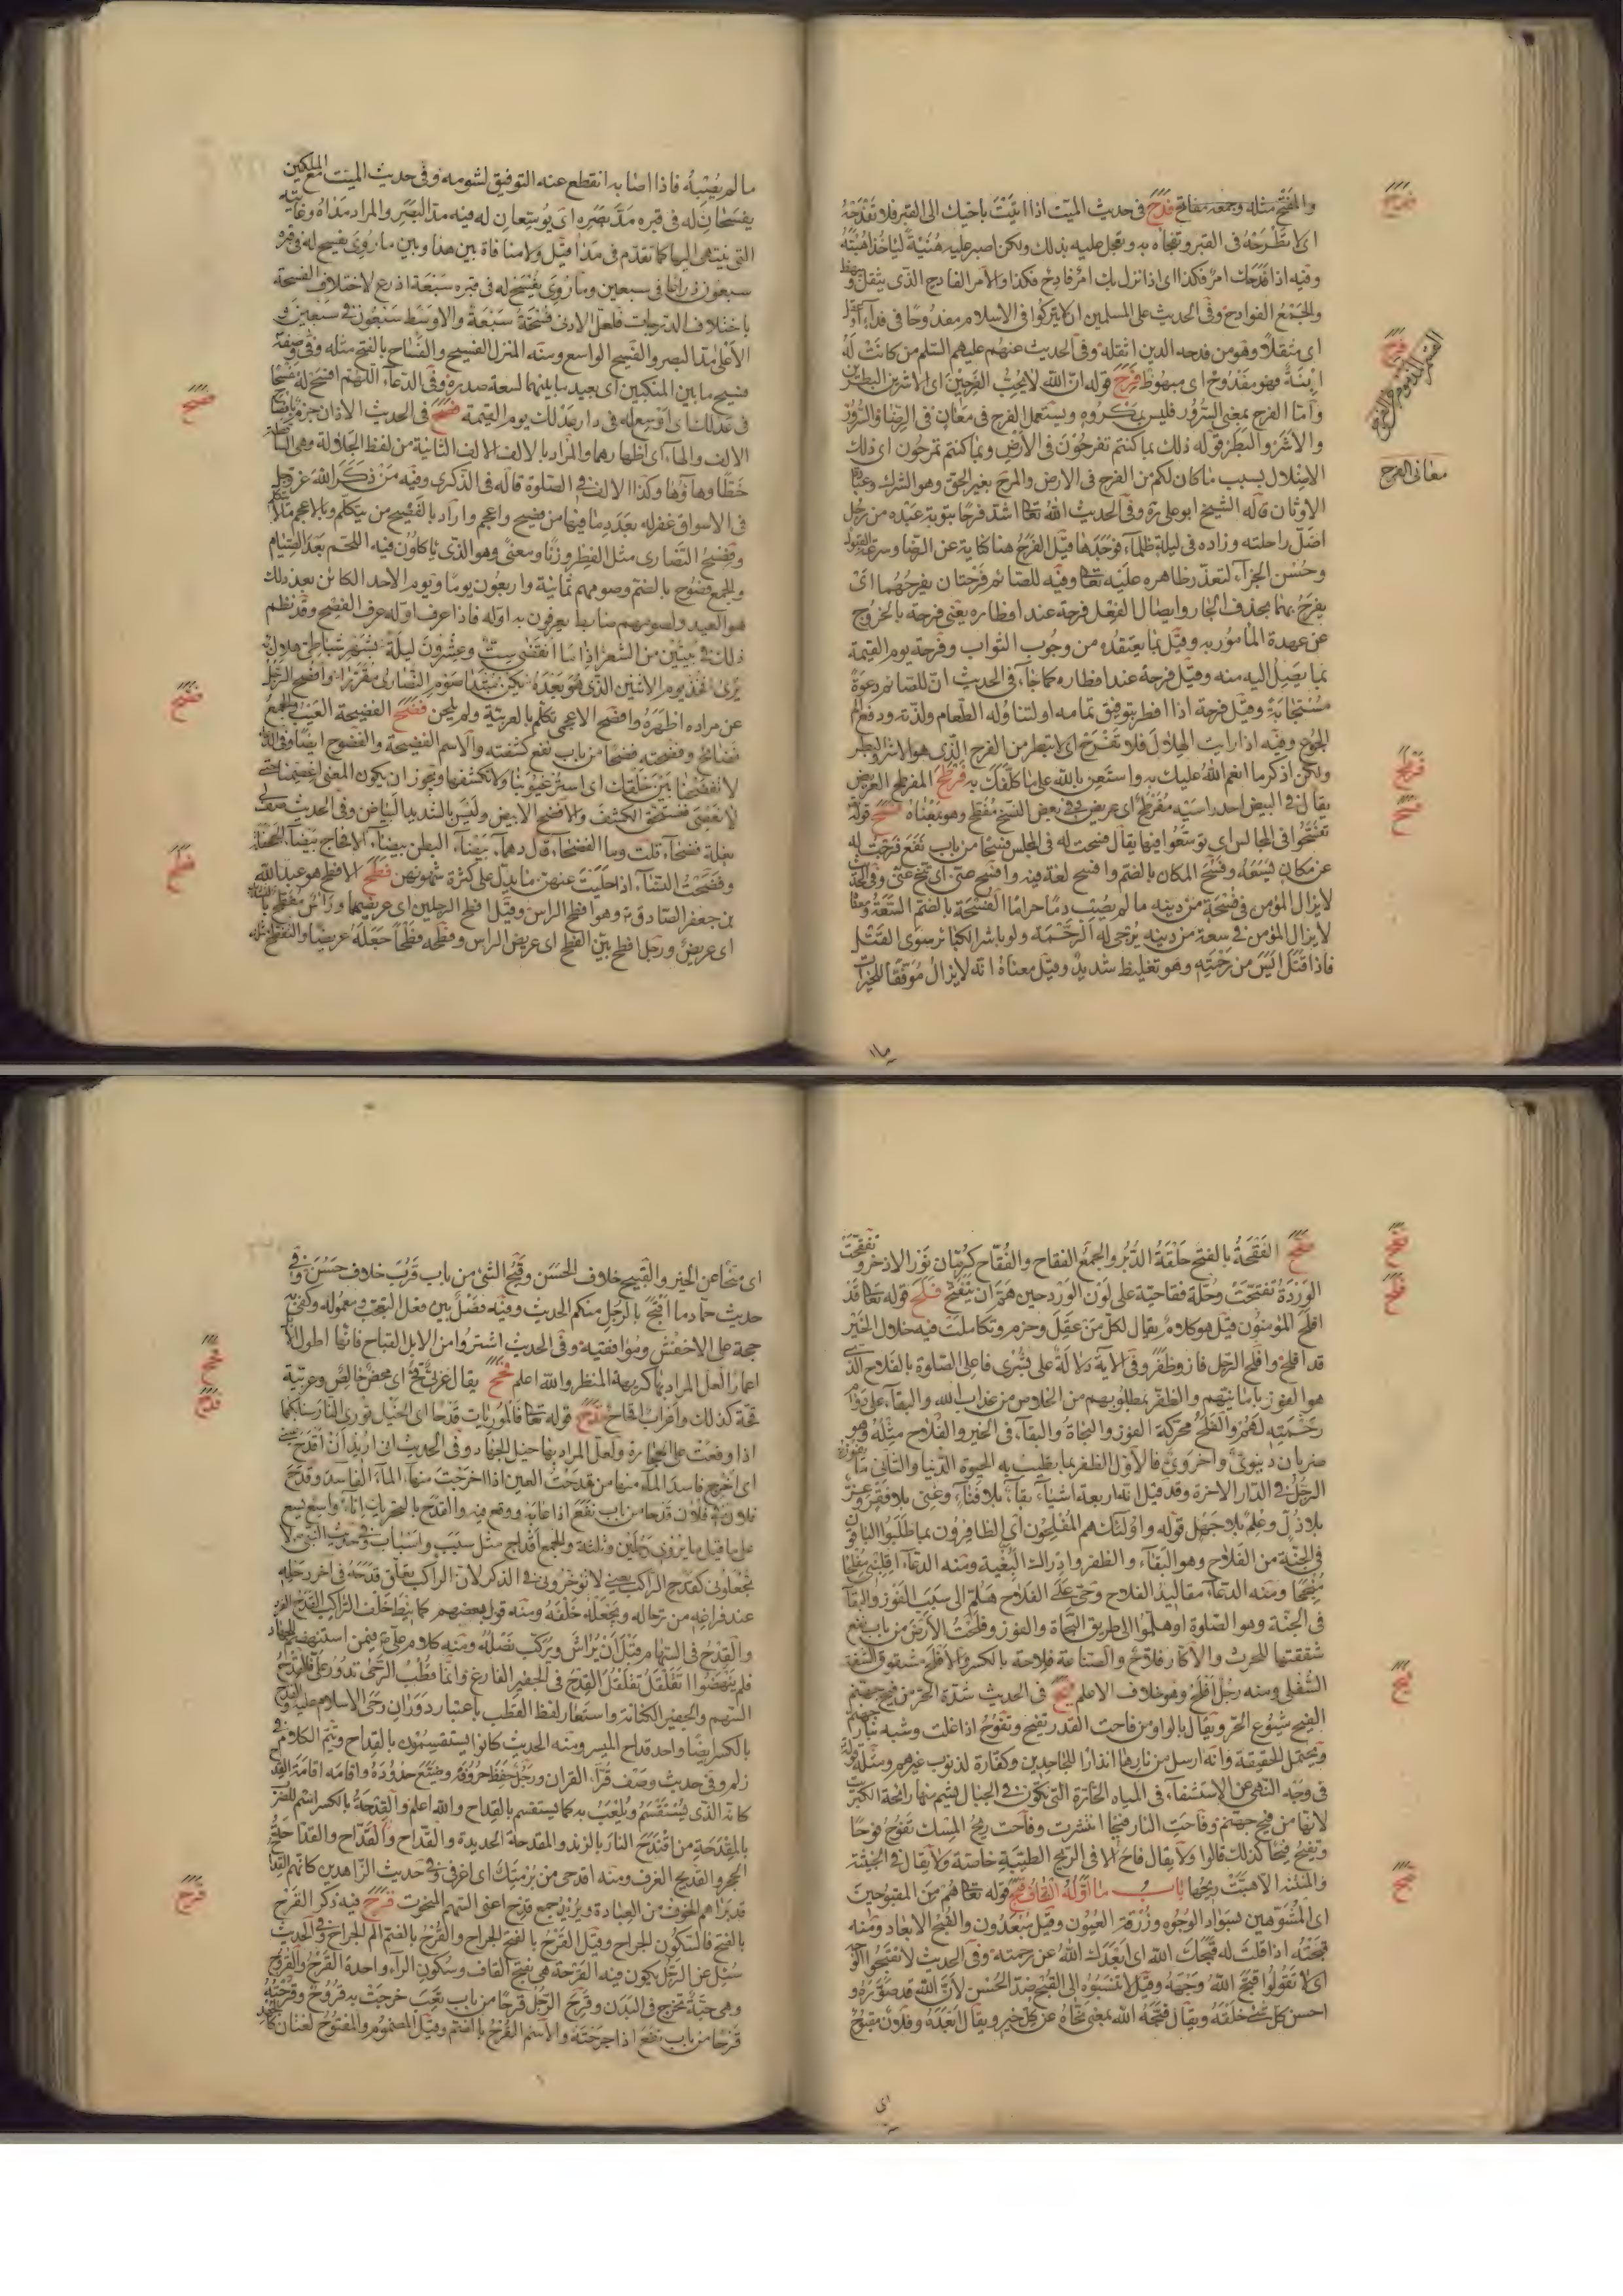 والمفتح مثله وجمعه مفاتح فدح في حديث الميت اذا اتيت باخيك الى القبر فلا تفدحه
اى لا تطرحه في القبر وتفجأه به وتعجل عليه بذلك ولكن اصبر عليه هنيئة ليأخذ اهبته
وفيه اذا فدحك امر فكذا اى اذا نزل بك امر فادح فكذا والامر الفادح الذى يثقل ويبهظ
والجمع الفوادح وفي الحديث على المسلمين ان لا يتركوا في الاسلام مفدوحا في فداء او عقل
اى مثقلا وهو من فدحه الدين اثقله وفي الحديث عنهم عليهم السلم من كانت له
ابنة فهو مفدوح اى مبهوظ فرح قوله ان الله لا يحب الفرحين اى الاشرين البطرين
واما الفرح بمعنى السرور فليس بمكروه ويستعمل الفرح في معان في الرضا والسرور
والاشر والبطر قوله ذلك بما كنتم تفرحون في الارض وبما كنتم تمرحون اى ذلك
الاضلال بسبب ما كان لكم من الفرح في الارض والمرح بغير الحق وهو الشرك وعبادة
الاوثان قاله الشيخ ابو على ره وفي الحديث الله تعا اشد فرحا بتوبة عبده من رجل
اضل راحلته وزاده في ليلة ظلماء فوجدها قيل الفرح هنا كناية عن الرضا وسرعة القبول
وحسن الجزاء لتعذر ظاهره عليه تعا وفيه للصائم فرحتان يفرحهما اى
يفرح بهما بحذف الجار وايصال الفعل فرحة عند افطاره يعنى فرحة بالخروج
عن عهدة المأمور به وقيل بما يعتقده من وجوب الثواب وفرحة يوم القيمة
بما يصل اليه منه وقيل فرحة عند افطاره كما جاء في الحديث ان للصائم دعوة
مستجابة وقيل فرحة اذا افطر بتوفيق تمامه او لتناوله الطعام ولذته ودفع الم
الجوع وفيه اذا رايت الهلال فلا تفرح اى لا تبطر من الفرح الذى هو الاشر والبطر
ولكن اذكر ما انعم الله عليك به واستعن بالله على ما كلفك به فرطح المفرطح العريض
يقال في البيض احد راسيه مفرطح اى عريض وفي بعض النسخ مفطح وهو بمعناه فسح قوله
تفسحوا في المجالس اى توسعوا فيها يقال فسحت له في المجلس فسحا من باب نفع فرجت له
عن مكان يسعه وفسح المكان بالضم وافسح لغة فيه وافسح عنى اى تنح عنى وفي الحديث
لا يزال المؤمن في فسحة من دينه ما لم يصب دما حراما الفسحة بالضم السعة ومعناه
لا يزال المؤمن في سعة من دينه يرجى له الرحمة ولو باشر الكبائر سوى القتل
فاذا قتل ايس من رحمته وهو تغليظ شديد وقيل معناه انه لا يزال موفقا للخيرات
فدح
فرح
معانى الفرح
فرطح
فسح
ما لم يصبه فاذا اصابه انقطع عنه التوفيق لشومه وفي حديث الميت مع الملكين
يفسحان له في قبره مد بصره اى يوسعان له فيه مد البصر والمراد مداه وغايته
التى ينتهى اليها كما تقدم في مدا قيل ولا منافاة بين هذا وبين ما روى يفسح له في قبره
سبعون ذراعا في سبعين وما روى يفسح له في قبره سبعة اذرع لاختلاف الفسحة
باختلاف الدرجات فلعل الادنى فسحة سبعة والاوسط سبعون في سبعين و
الاعلى مد البصر والفسيح الواسع ومنه المنزل الفسيح والفساح بالفتح مثله وفي وصفه
فسيح ما بين المنكبين اى بعيد ما بينهما لسعة صدره وفي الدعاء اللهم افسح له مفسحا
في عدلك اى اوسع له في دار عدلك يوم القيمة فصح في الحديث الاذان جزم بافصاح
الالف والهاء اى اظهارهما والمراد بالالف الالف الثانية من لفظ الجلالة وهى الساقطة
خطا وهاؤها وكذا الالف في الصلوة قاله في الذكرى وفيه من ذكر الله عز وجل
في الاسواق غفر له بعدد ما فيها من فصيح واعجم واراد بالفصيح من يتكلم وبالاعجم ما لا يتكلم
وفصح النصارى مثل الفطر وزنا ومعنى وهو الذى ياكلون فيه اللحم بعد الصيام
والجمع فصوح بالضم وصومهم ثمانية واربعون يوما ويوم الاحد الكائن بعد ذلك
هو العيد ولصومهم ضابط يعرفون به اوله فاذا عرف اوله عرف الفصح وقد نظم
ذلك في بيتين من الشعر اذا ما انقضى ست وعشرون ليلة بشهر شباطى هلال
يرى فخذ يوم الاثنين الذى هو بعده يكن مبتدا صوم النصارى مقررا وافصح الرجل
عن مراده اظهره وافصح الاعجمى تكلم بالعربية ولم يلحن فضح الفضيحة العيب والجمع
فضائح وفضحته فضحا من باب نفع كشفته والاسم الفضيحة والفضوح ايضا وفي الدعاء
لا تفضحنا بين خلقك اى استر عيوبنا ولا تكشفها ويجوز ان يكون المعنى اعصمنا حتى
لا نعصى فنستحق الكشف والافضح الابيض وليس بالشديد البياض وفي الحديث
بغلة فضحاء قلت وما الفضحاء قال دهماء بيضاء البطن بيضاء الافحاج بيضاء الجحفلة
فطح الافطح هو عبدالله
بن جعفر الصادق ع وهو افطح الراس وقيل افطح الرجلين اى عريضهما وراس مفطح
اى عريض ورجل افطح بين الفطح اى عريض الراس وفطحه فطحا جعله عريضا والتفطيح مثله
فصح
فضح
فطح
فقح الفقحة بالفتح حلقة الدبر والجمع الفقاح والفقاح كرمان نور الاذخر وتفقحت
الوردة تفتحت وحلة فقاحية على لون الورد حين هم ان يتفتح فلح قوله تعا قد
افلح المؤمنون قيل هو كلام يقال لكل من عقل وحزم وتكاملت فيه خلال الخير
قد افلح وافلح الرجل فاز وظفر وفي الآية دلالة على بشرى فاعلى الصلوة بالفلاح الذى
هو الفوز بامانيهم والظفر بمطلوبهم من الخلاص من عذاب الله والبقاء على دوام
رحمته لهم والفلح محركة الفوز والنجاة والبقاء في الخير والفلاح مثله وهو
ضربان دنيوى واخروى فالاول الظفر بما يطيب به الحيوة الدنيا والثانى ما يفوز به
الرجل في الدار الاخرة وقد قيل انه اربعة اشياء بقاء بلا فناء وغنى بلا فقر وعز
بلا ذل وعلم بلا جهل قوله واولئك هم المفلحون اى الظافرون بما طلبوا الباقون
في الجنة من الفلاح وهو البقاء والظفر وادراك البغية ومنه الدعاء اقلبنى مفلحا
منجحا ومنه الدعاء مقاليد الفلاح وحى على الفلاح هلم الى سبب الفوز والبقاء
في الجنة وهو الصلوة او هلموا الى طريق النجاة والفوز وفلحت الارض من باب نفع
شققتها للحرث والاكار فلاح والصناعة فلاحة بالكسر والافلح مشقوق الشفة
السفلى ومنه رجل افلح وهو خلاف الاعلم فيح في الحديث شدة الحر من فيح جهنم
الفيح شيوع الحر ويقال بالواو من فاحت القدر تفيح وتفوح اذا غلت وشبه بنار جهنم
ويحتمل الحقيقة وانه ارسل من نارها انذارا للجاحدين وكفارة لذنوب غيرهم ومثله قوله
في وجه النهى عن الاستشفاء في المياه الحارة التى تكون في الجبال فيشم منها رائحة الكبريت
لانها من فيح جهنم وفاحت النار فيحا انتشرت وفاحت ريح المسك تفوح فوحا
وتفيح فيحا كذلك قالوا ولا يقال فاح الا في الريح الطيبة خاصة ولا يقال في الخبيثة
والمنتنة الا هبت ريحها باب ما اوله القاف قبح قوله تعا هم من المقبوحين
اى المشوهين بسواد الوجوه وزرقة العيون وقيل مبعدون والقبح الابعاد ومنه
قبحته اذا قلت له قبحك الله اى ابعدك الله عن رحمته وفي الحديث لا تقبحوا الوجه
اى لا تقولوا قبح الله وجهه وقيل لا تنسبوه الى القبح ضد الحسن لان الله قد صوره و
احسن كل شئ خلقه ويقال قبحه الله بمعنى نحاه عن كل خير ويقال ابعده وفلان مقبوح
فقح
فلح
فيح
قبح
اى
اى منحا عن الخير والقبيح خلاف الحسن وقبح الشئ من باب قرب خلاف حسن وفي
حديث حماد ما اقبح بالرجل منكم الحديث وفيه فصل بين فعل التعجب ومعموله وكفى به
حجة على الاخفش وموافقيه وفي الحديث اشتروا من الابل القباح فانها اطول الابل
اعمارا لعل المراد بها كريهة المنظر والله اعلم قحح يقال عربى قح اى محض خالص وعربية
قحة كذلك واعراب اقحاح قدح قوله تعا فالموريات قدحا اى الخيل تورى النار بسنابكها
اذا وقعت على الحجارة ولعل المراد بها خيل الجهاد وفي الحديث انى اريد ان اقدح عينى
اى اخرج فاسد الماء منها من قدحت العين اذا اخرجت منها الماء الفاسد وقدح
فلان في فلان قدحا من باب نفع اذا عابه ووقع فيه والقدح بالتحريك اناء واسع يسع
على ما قيل ما يروى رجلين وثلثة والجمع اقداح مثل سبب واسباب وفي حديث النبى ص لا
تجعلونى كقدح الراكب يعنى لا تؤخرونى في الذكر لان الراكب يعلق قدحه في آخر رحله
عند فراغه من ترحاله ويجعله خلفه ومنه قول بعضهم كما نيط خلف الراكب القدح الفرد
والقدح في السهام قبل ان يراش ويركب نصله ومنه كلام على ع فيمن استنهضهم للجهاد
فلم ينهضوا اتقلقل تقلقل القدح في الجفير الفارغ وانما قطب الرحى تدور على فالقدح
السهم والجفير الكنانة واستعار لفظ القطب باعتبار دوران رحى الاسلام عليه والقدح
بالكسر ايضا واحد قداح الميسر ومنه الحديث كانوا يستقسمون بالقداح ويتم الكلام في
زلم وفي حديث وصف قراء القران ورجل حفظ حروفه وضيع حدوده واقامه اقامة القدح
كانه الذى يستقسم ويلعب به كما يستقسم بالقداح والله اعلم والقدحة بالكسر اسم للضرب
بالمقدحة من اقتدح النار بالزند والمقدحة الحديدة والقداح والقداح والقداحة
الحجر والقديح الغرف ومنه اقدحى من برمتك اى اغرفى وفي حديث الزاهدين كانهم القداح
قد براهم الخوف من العبادة ويريد جمع قدح اعنى السهم المنحوت قرح فيه ذكر القرح
بالفتح فالسكون الجراح وقيل القرح بالفتح الجراح والقرح بالضم الم الجراح وفي الحديث
سئل عن الرجل يكون فيه القرحة هى بفتح القاف وسكون الراء واحدة القرح والقروح
وهى حبة تخرج في البدن وقرح الرجل قرحا من باب تعب خرجت به قروح وقرحته
قرحا من باب نفع اذا جرحته والاسم القرح بالضم وقيل المضموم والمفتوح لغتان كالجهد
قحح
قدح
قرح